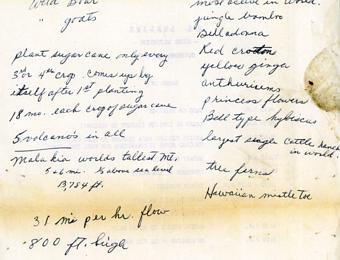 Wild Boar
" goats
plant sugar cane only every
3rd or 4th crop. comes up by
itself after 1st planting
18 mo. each crop of sugar cane
5 volcanos in all
Malakia worlds tallest Mt.
5-6 mi. ½ above sea level
13,784 ft.
31 mi per hr. flow
800 ft. high
most active in world.
jungle bamboo
Belladonna
Red croton
yellow ginga
anthuriums
princess flowers
Bell type hybiscus
largest single cattle ranch
in world.
tree ferns
Hawaiian mistletoe